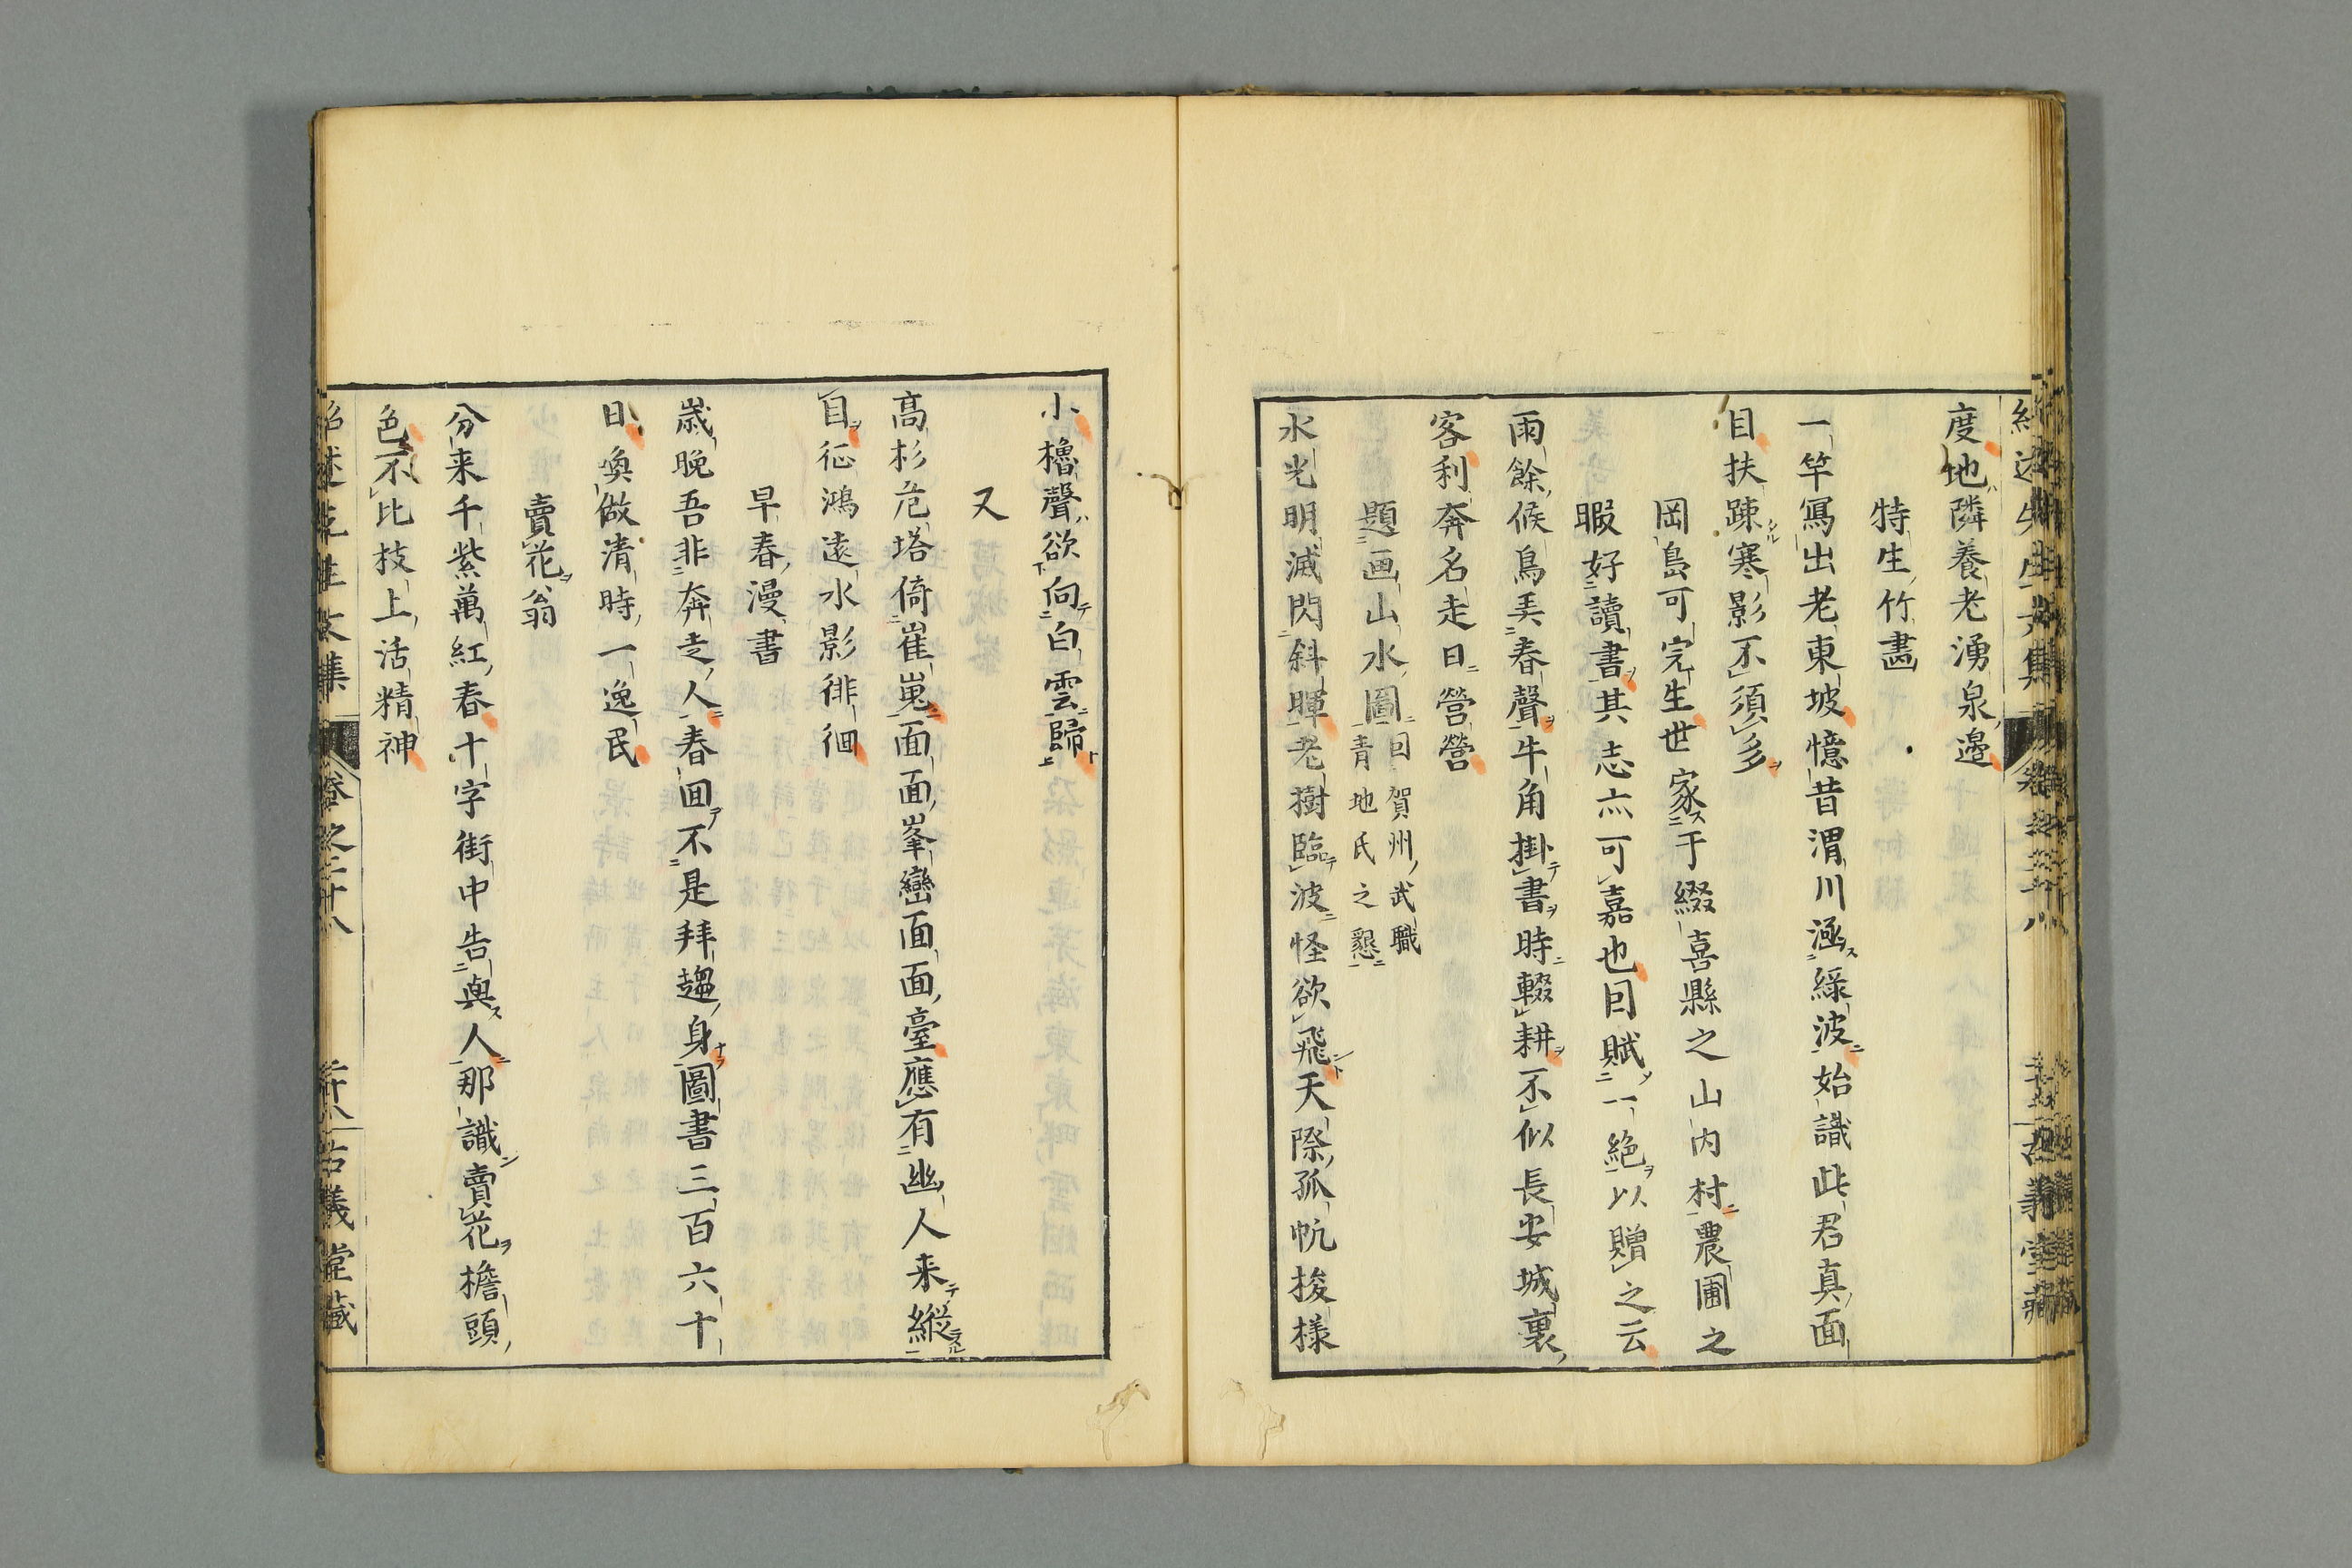 度地隣養老湧泉邊
特生竹畵
一竿寫出老東坡憶昔渭川涵綠波始識此君真面
目扶踈寒影不須多
岡島可完生世家于綴喜縣之山内村農圃之
暇好讀書其志亦可嘉也因賦一絶以贈之云
雨餘候鳥弄春聲牛角掛書時輟耕不似長安城裏
客利奔名走日營營
題画山水圖 因賀州武職青地氏之懇
水光明滅閃斜暉老樹臨波怪欲飛天際孤帆梭様
小櫓聲欲向白雲歸
又
高杉危塔倚崔嵬面面峯巒面面臺應有幽人来縱
目征鴻遠水影徘徊
早春漫書
歳晩吾非奔走人春囬不是拜趨身圖書三百六十
日喚做清時一逸民
賣花翁
分来千紫萬紅春十字街中告與人那識賣花擔頭
色不比枝上活精神
紹述先生文集 卷之二十八 古義堂藏